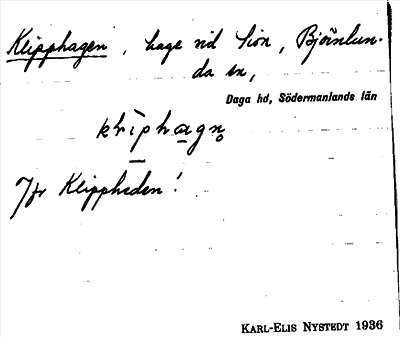 Klipphagen, hage vid Sion, Björnlun-
da sn,
Daga hd, Södermanlands län
Jfr Klippheden!
KARL-ELIS NYSTEDT 1936